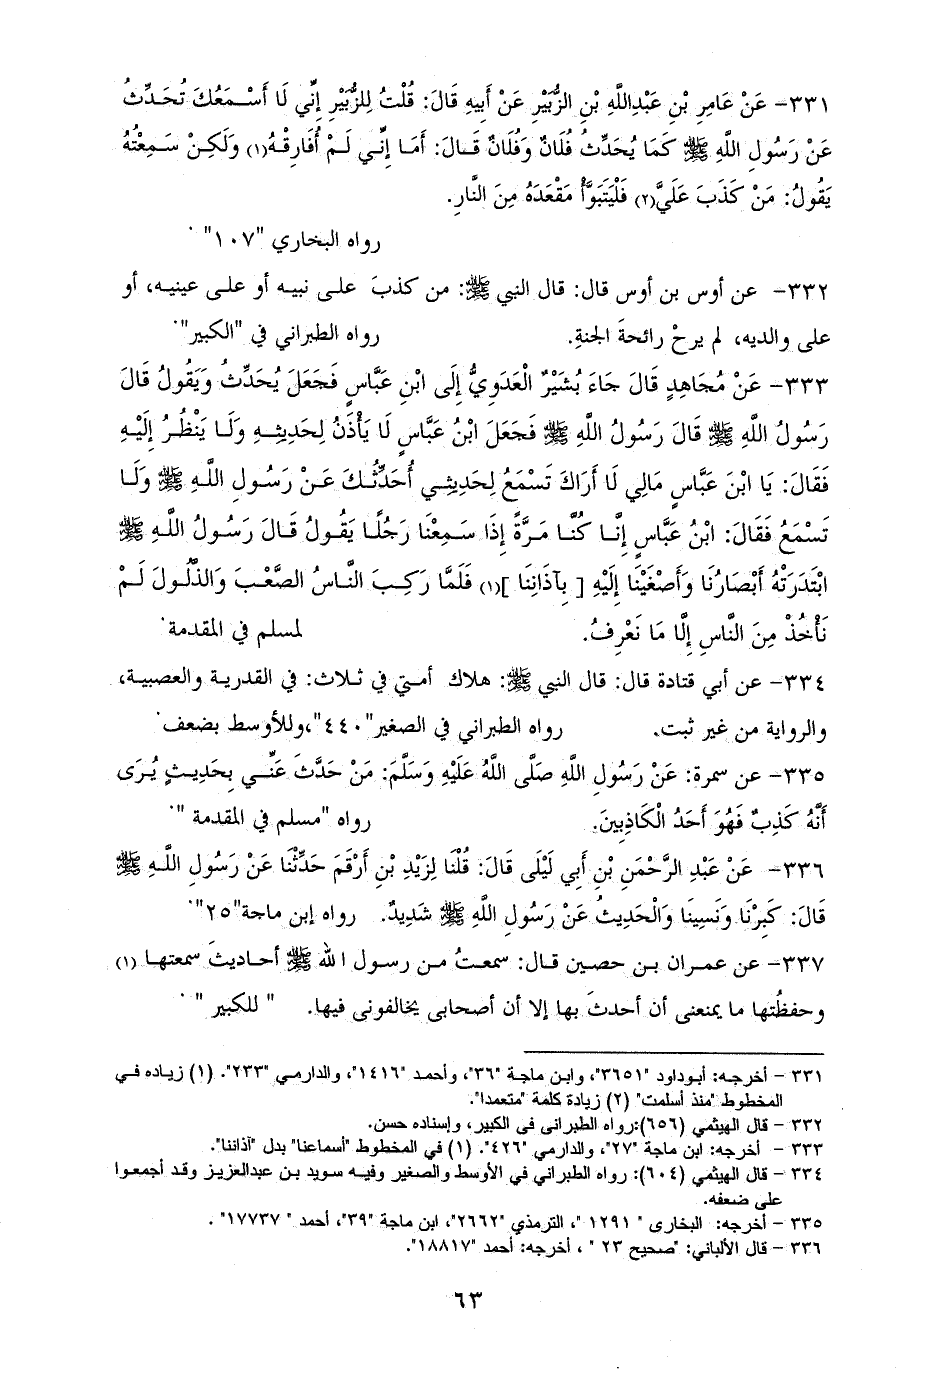 ٣٣١- عَنْ عَامِرِ بْنِ عَبْدِاللَّهِ بْنِ الزُّبَيْرِ عَنْ أَبِيهِ قَالَ: قُلْتُ لِلزُّبَيْرِ إِنِّي لَا أَسْمَعُكَ تُحَدِّثُ
عَنْ رَسُولِ اللَّهِ ﷺ كَمَا يُحَدِّثُ فُلَانٌ وَفُلَانٌ قَالَ: أَمَا إِنِّي لَمْ أُفَارِقْهُ(١) وَلَكِنْ سَمِعْتُهُ
يَقُولُ: مَنْ كَذَبَ عَلَيَّ(٢) فَلْيَتَبَوَّأْ مَقْعَدَهُ مِنَ النَّارِ.
رواه البخاري "١٠٧".
٣٣٢- عن أوس بن أوس قال: قال النبي ﷺ: من كذبَ على نبيه أو على عينيه، أو
على والديه، لم يرحْ رائحةَ الجنةِ. رواه الطبراني في "الكبير".
٣٣٣- عَنْ مُجَاهِدٍ قَالَ جَاءَ بُشَيْرٌ الْعَدَوِيُّ إِلَى ابْنِ عَبَّاسٍ فَجَعَلَ يُحَدِّثُ وَيَقُولُ قَالَ
رَسُولُ اللَّهِ ﷺ قَالَ رَسُولُ اللَّهِ ﷺ فَجَعَلَ ابْنُ عَبَّاسٍ لَا يَأْذَنُ لِحَدِيثِهِ وَلَا يَنْظُرُ إِلَيْهِ
فَقَالَ: يَا ابْنَ عَبَّاسٍ مَالِي لَا أَرَاكَ تَسْمَعُ لِحَدِيثِي أُحَدِّثُكَ عَنْ رَسُولِ اللَّهِ ﷺ وَلَا
تَسْمَعُ فَقَالَ: ابْنُ عَبَّاسٍ إِنَّا كُنَّا مَرَّةً إِذَا سَمِعْنَا رَجُلًا يَقُولُ قَالَ رَسُولُ اللَّهِ ﷺ
ابْتَدَرَتْهُ أَبْصَارُنَا وَأَصْغَيْنَا إِلَيْهِ [ بِآذَانِنَا ](١) فَلَمَّا رَكِبَ النَّاسُ الصَّعْبَ وَالذَّلُولَ لَمْ
نَأْخُذْ مِنَ النَّاسِ إِلَّا مَا نَعْرِفُ. لمسلم في المقدمة.
٣٣٤- عن أبي قتادة قال: قال النبي ﷺ: هلاك أمتي في ثلاث: في القدرية والعصبية،
والرواية من غير ثبت. رواه الطبراني في الصغير"٤٤٠"،وللأوسط بضعف.
٣٣٥- عن سمرة: عَنْ رَسُولِ اللهِ صَلَّى اللَّهُ عَلَيْهِ وَسَلَّمَ: مَنْ حَدَّثَ عَنِّي بِحَدِيثٍ يُرَى
أَنَّهُ كَذِبٌ فَهُوَ أَحَدُ الْكَاذِبِينَ. رواه "مسلم في المقدمة ".
٣٣٦- عَنْ عَبْدِ الرَّحْمَنِ بْنِ أَبِي لَيْلَى قَالَ: قُلْنَا لِزَيْدِ بْنِ أَرْقَمَ حَدِّثْنَا عَنْ رَسُولِ اللَّهِ ﷺ
قَالَ: كَبِرْنَا وَنَسِينَا وَالْحَدِيثُ عَنْ رَسُولِ اللَّهِ ﷺ شَدِيدٌ. رواه إبن ماجة"٢٥".
٣٣٧- عن عمران بن حصين قال: سمعتُ من رسول الله ﷺ أحاديثَ سمعتها (١)
وحفظُتها ما يمنعنى أن أحدثَ بها إلا أن أصحابى يخالفونى فيها. " للكبير ".
٣٣١ - أخرجه: أبوداود "٣٦٥١"، وابن ماجة "٣٦"، وأحمد "١٤١٦"، والدارمي "٢٣٣". (١) زياده في
المخطوط "منذ أسلمت" (٢) زيادة كلمة "متعمدا".
٣٣٢ - قال الهيثمي (٦٥٦):رواه الطبرانى فى الكبير، وإسناده حسن.
٣٣٣ - أخرجه: ابن ماجة "٢٧"، والدارمي "٤٢٦". (١) في المخطوط "أسماعنا" بدل "آذاننا".
٣٣٤ - قال الهيثمي (٦٠٤): رواه الطبراني في الأوسط والصغير وفيه سويد بن عبدالعزيز وقد أجمعوا
على ضعفه.
٣٣٥ - أخرجه: البخارى " ١٢٩١ "، الترمذي "٢٦٦٢"، ابن ماجة "٣٩"، أحمد " ١٧٧٣٧" .
٣٣٦ - قال الألباني: "صحيح ٢٣ " ، أخرجه: أحمد "١٨٨١٧".
٦٣